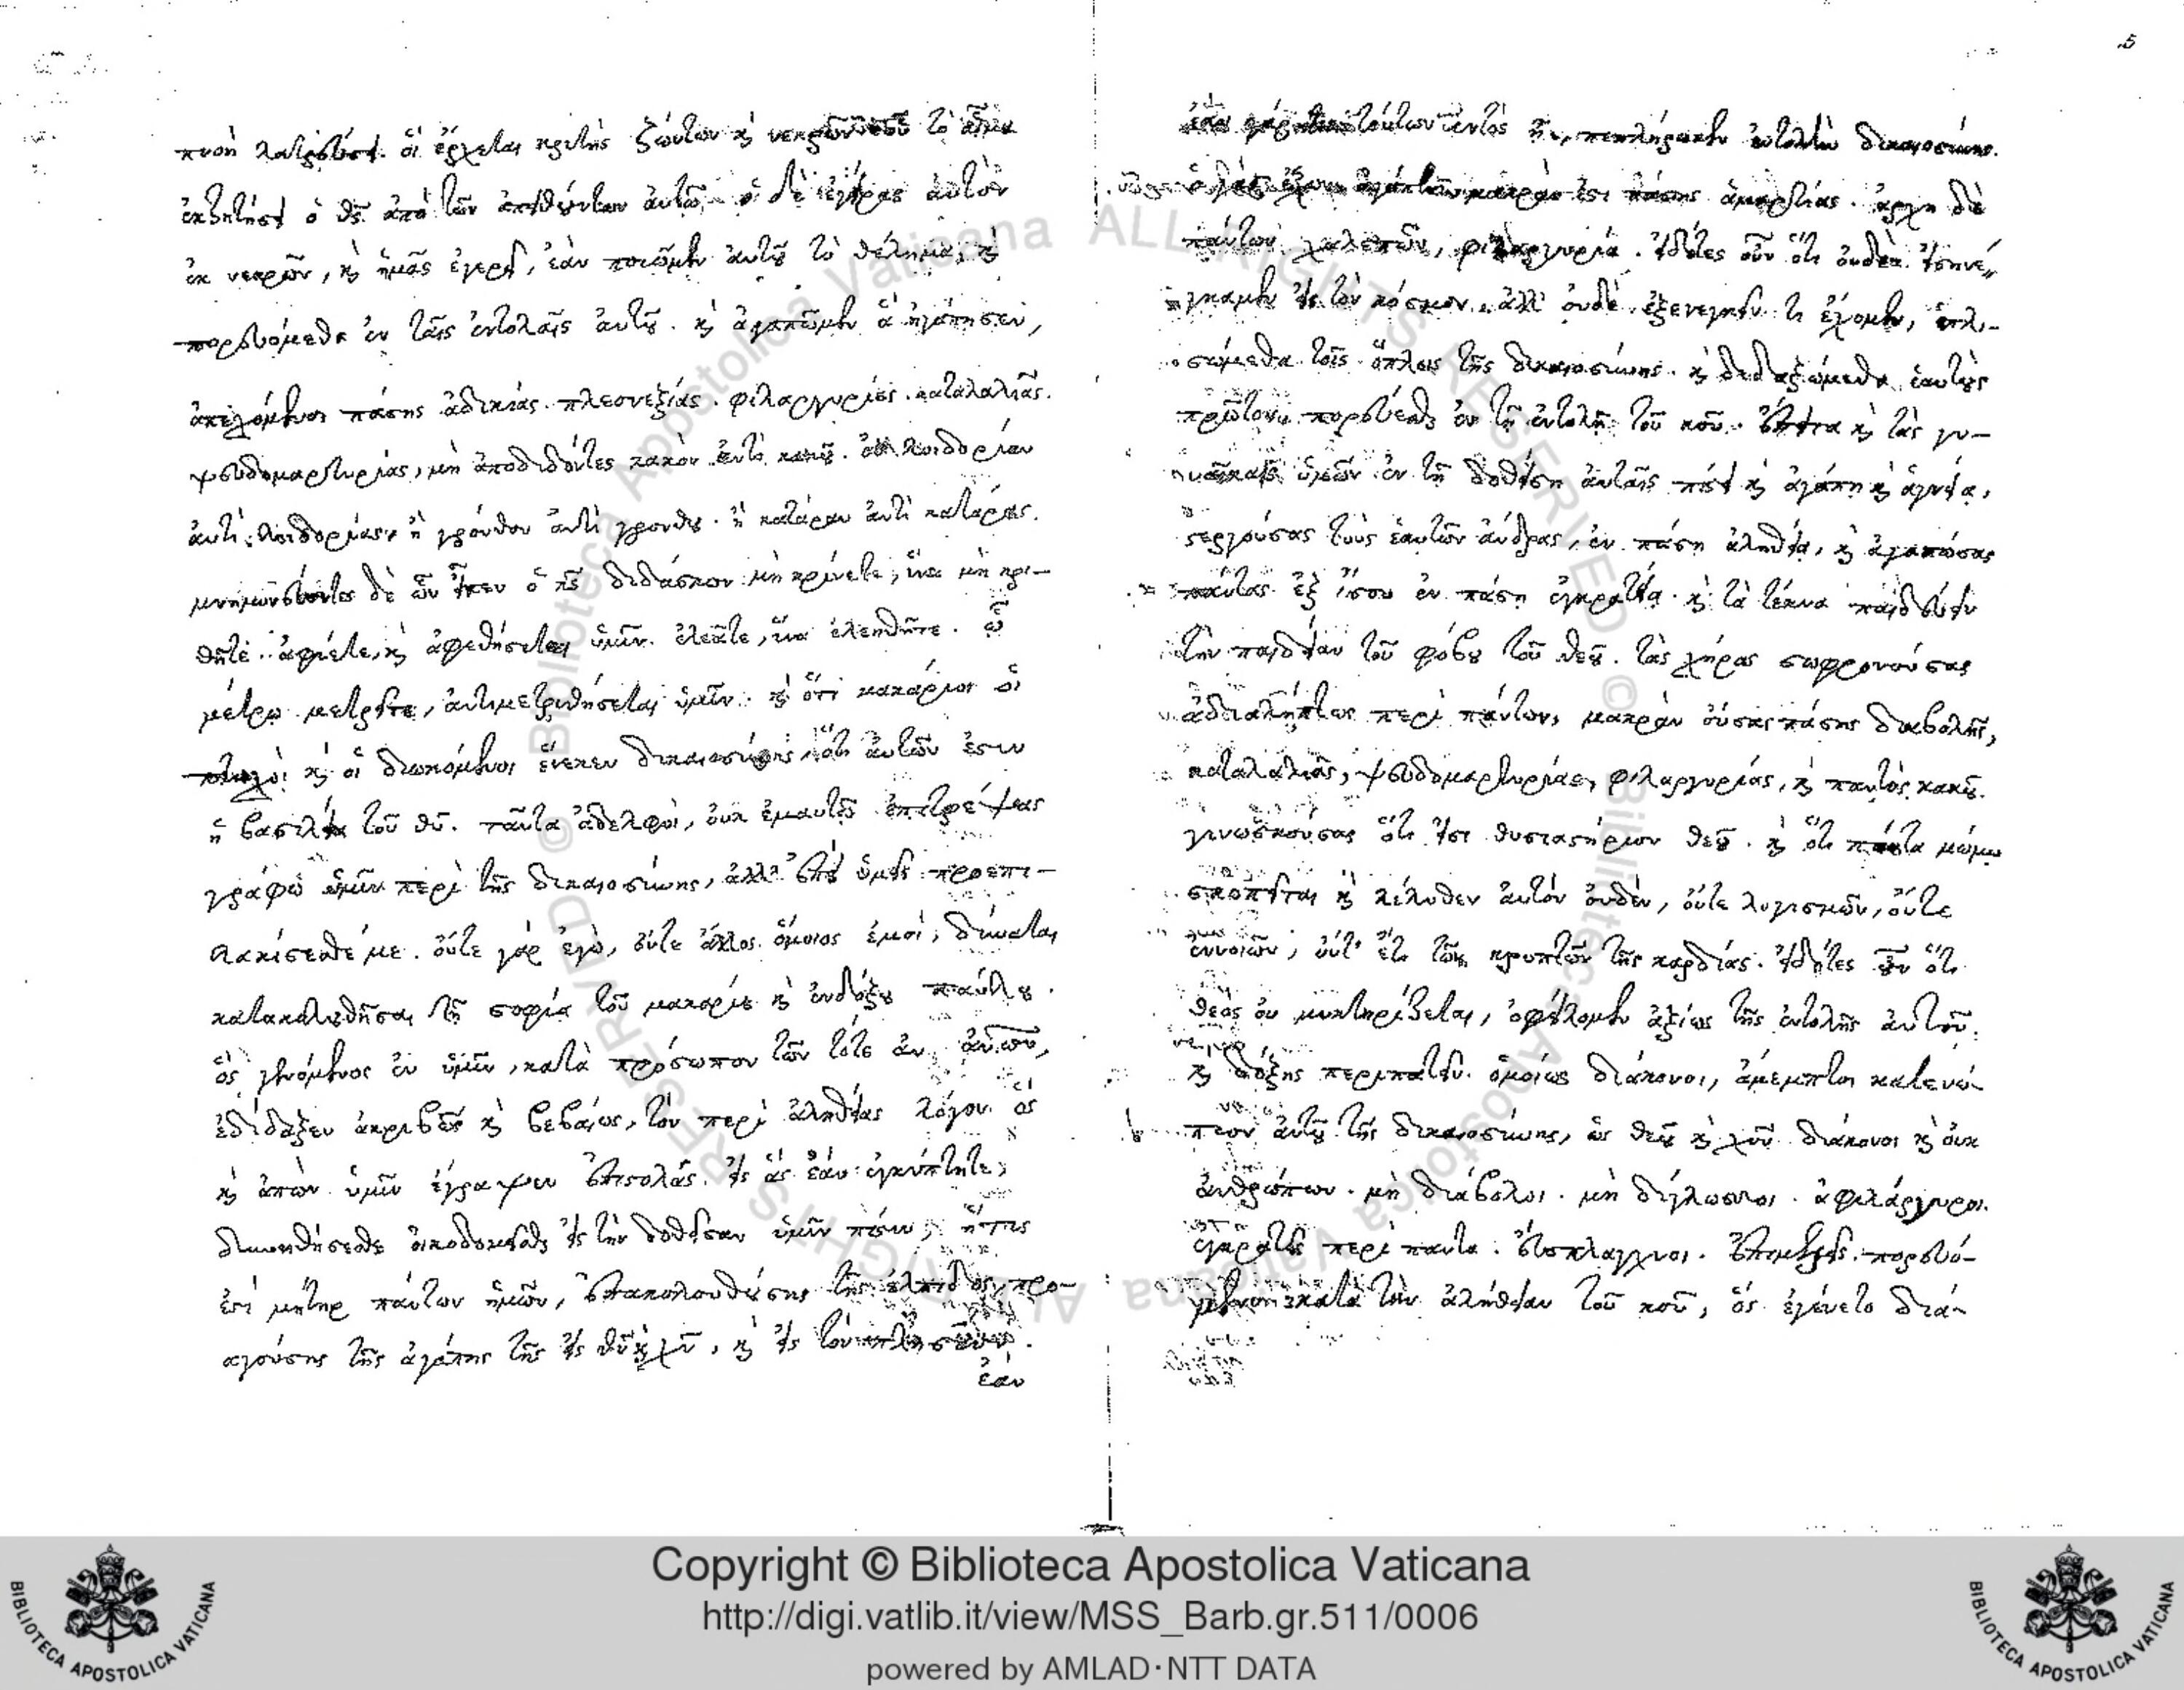 πνοὴ λατρεύσει. ὃς ἔρχεται κριτὴς ζώντων κ νεκρῶν οὗ τὸ αἷμα
ἐκζητήσει ὁ θς ἀπὸ τῶν ἀπειθούντων αὐτῶ. ὁ δὲ ἐγείρας αὐτὸν
ἐκ νεκρῶν, κ ἡμᾶς ἐγερεῖ, ἐὰν ποιῶμεν αὐτοῦ τὸ θέλημα, κ
πορευόμεθα ἐν ταῖς ἐντολαῖς αὐτοῦ. κ ἀγαπῶμεν ἃ ἠγάπησεν,
ἀπεχόμενοι πάσης ἀδικίας. πλεονεξίας. φιλαργυρίας. καταλαλιᾶς.
ψευδομαρτυρίας, μὴ ἀποδιδόντες κακὸν ἀντὶ κακοῦ. λοιδορίαν
ἀντὶ λοιδορίας, ἢ γρόνθον ἀντὶ γρόνθου. ἢ κατάραν ἀντὶ κατάρας.
μνημονεύοντες δὲ ὧν εἶπεν ὁ κς διδάσκων μὴ κρίνετε, ἵνα μὴ κρι-
θῆτε. ἀφίετε, κ ἀφεθήσεται ὑμῖν. ἐλεᾶτε, ἵνα ἐλεηθῆτε. ὧ
μέτρω μετρεῖτε, ἀντιμετρηθήσεται ὑμῖν. κ ὅτι μακάριοι οἱ
πτωχοὶ κ οἱ διωκόμενοι ἕνεκεν δικαιοσύνης, ὅτι αὐτῶν ἐστιν
ἡ βασιλεία τοῦ θυ. ταῦτα ἀδελφοὶ, οὐκ ἐμαυτῶ ἐπιτρέψας
γράφω ὑμῖν περὶ τῆς δικαιοσύνης, ἀλλ' ἐπεὶ ὑμεῖς προεπι-
λακίσασθέ με. οὔτε γὰρ ἐγὼ, οὔτε ἄλλος ὅμοιος ἐμοὶ, δύναται
κατακολουθῆσαι τῇ σοφία τοῦ μακαρίου κ ἐνδόξου παύλου.
ὃς γενόμενος ἐν ὑμῖν, κατὰ πρόσωπον τῶν τότε ἀνων,
ἐδίδαξεν ἀκριβῶς κ βεβαίως, τὸν περὶ ἀληθείας λόγον. ὃς
κ ἀπὼν ὑμῖν ἔγραψεν ἐπιστολάς. εἰς ἃς ἐὰν ἐγκύπτητε,
δυνηθήσεσθε οἰκοδομεῖσθαι εἰς τὴν δοθεῖσαν ὑμῖν πίστιν, ἥτις
ἐστὶ μήτηρ πάντων ἡμῶν, ἐπακολουθούσης τῆς ἐλπίδος, προ-
αγούσης τῆς ἀγάπης τῆς εἰς θν κ χν, κ εἰς τὸν πλησίον.
ἐὰν
5
ἐὰν γάρ τις τούτων ἐντὸς ᾖ, πεπλήρωκεν ἐντολὴν δικαιοσύνης.
ὁ γὰρ ἔχων ἀγάπην μακράν ἐστι πάσης ἁμαρτίας. ἀρχὴ δὲ
πάντων χαλεπῶν, φιλαργυρία. εἰδότες οὖν ὅτι οὐδὲν εἰσηνέ-
γκαμεν εἰς τὸν κόσμον, ἀλλ' οὐδὲ ἐξενεγκεῖν τι ἔχομεν, ὁπλι-
σώμεθα τοῖς ὅπλοις τῆς δικαιοσύνης. κ διδάξωμεν ἑαυτοὺς
πρῶτον πορεύεσθαι ἐν τῇ ἐντολῇ τοῦ κου. ἔπειτα κ τὰς γυ-
ναῖκας ὑμῶν ἐν τῇ δοθείσῃ αὐταῖς πίστει κ ἀγάπη κ ἁγνεία,
στεργούσας τοὺς ἑαυτῶν ἄνδρας, ἐν πάση ἀληθεία, κ ἀγαπώσας
πάντας ἐξ ἴσου ἐν πάση ἐγκρατεία. κ τὰ τέκνα παιδεύειν
τὴν παιδείαν τοῦ φόβου τοῦ θεοῦ. τὰς χήρας σωφρονούσας
ἀδιαλείπτως περὶ πάντων, μακρὰν οὔσας πάσης διαβολῆς,
καταλαλιᾶς, ψευδομαρτυρίας, φιλαργυρίας, κ παντὸς κακοῦ.
γινωσκούσας ὅτι εἰσὶ θυσιαστήριον θεοῦ. κ ὅτι πάντα μώμω
σκοπεῖται κ λέληθεν αὐτὸν οὐδὲν, οὔτε λογισμῶν, οὔτε
ἐννοιῶν, οὔτ' ἔτι τῶν κρυπτῶν τῆς καρδίας. εἰδότες οὖν ὅτι
θεὸς οὐ μυκτηρίζεται, ὀφείλομεν ἀξίως τῆς ἐντολῆς αὐτοῦ
κ δόξης περιπατεῖν. ὁμοίως διάκονοι, ἄμεμπτοι κατενώ-
πιον αὐτοῦ τῆς δικαιοσύνης, ὡς θεοῦ κ χυ διάκονοι κ οὐκ
ἀνθρώπων. μὴ διάβολοι. μὴ δίγλωσσοι. ἀφιλάργυροι.
ἐγκρατεῖς περὶ πάντα. εὔσπλαγχνοι. ἐπιμελεῖς. πορευό-
μενοι κατὰ τὴν ἀλήθειαν τοῦ κου, ὃς ἐγένετο διά-
ALL RIGHTS RESERVED © Biblioteca Apostolica Vaticana
Copyright © Biblioteca Apostolica Vaticana
http://digi.vatlib.it/view/MSS_Barb.gr.511/0006
powered by AMLAD·NTT DATA
BIBLIOTECA APOSTOLICA VATICANA
BIBLIOTECA APOSTOLICA VATICANA